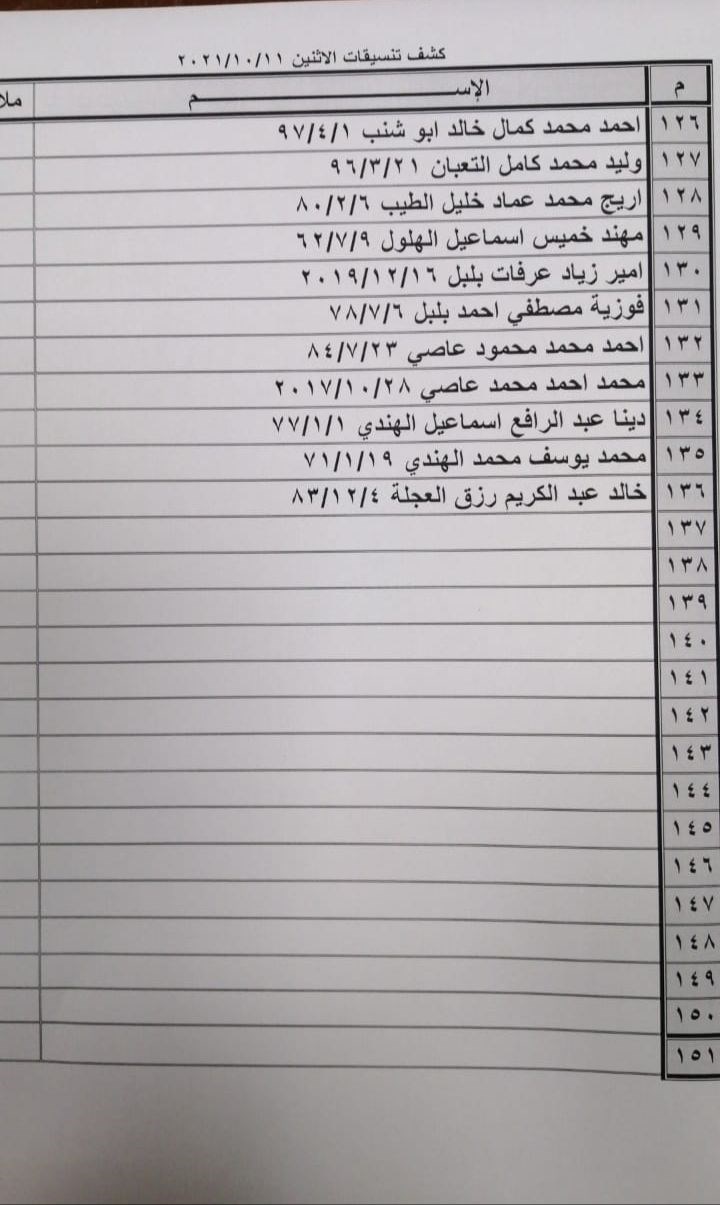 كشف تنسيقات الاثنين ٢٠٢١/١٠/١١
م الإســـــــــم
١٢٦ احمد محمد كمال خالد ابو شنب ٩٧/٤/١
١٢٧ وليد محمد كامل التعبان ٩٦/٣/٢١
١٢٨ اريج محمد عماد خليل الطيب ٨٠/٢/٦
١٢٩ مهند خميس اسماعيل الهلول ٦٢/٧/٩
١٣٠ امير زياد عرفات بلبل ٢٠١٩/١٢/١٦
١٣١ فوزية مصطفي احمد بلبل ٧٨/٧/٦
١٣٢ احمد محمد محمود عاصي ٨٤/٧/٢٣
١٣٣ محمد احمد محمد عاصي ٢٠١٧/١٠/٢٨
١٣٤ دينا عبد الرافع اسماعيل الهندي ٧٧/١/١
١٣٥ محمد يوسف محمد الهندي ٧١/١/١٩
١٣٦ خالد عبد الكريم رزق العجلة ٨٣/١٢/٤
١٣٧
١٣٨
١٣٩
١٤٠
١٤١
١٤٢
١٤٣
١٤٤
١٤٥
١٤٦
١٤٧
١٤٨
١٤٩
١٥٠
١٥١